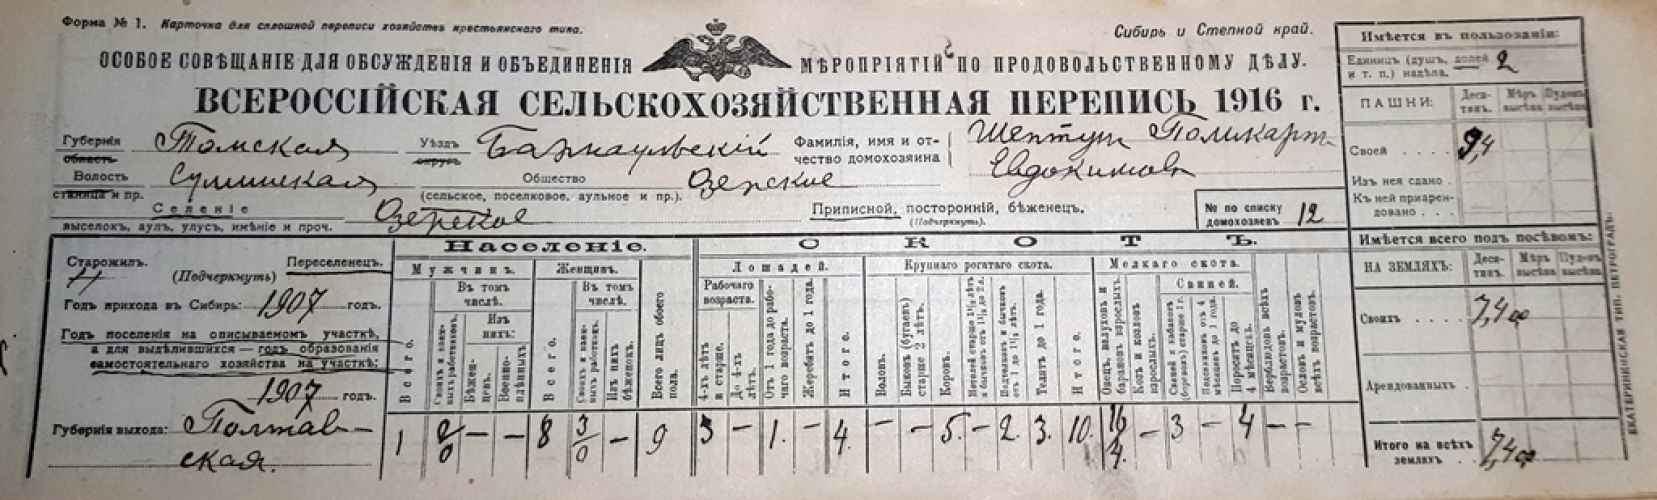 Форма № 1. Карточка для сплошной переписи хозяйств крестьянского типа.
Сибирь и Степной край.
ОСОБОЕ СОВѢЩАНІЕ ДЛЯ ОБСУЖДЕНІЯ И ОБЪЕДИНЕНІЯ МѢРОПРІЯТІЙ ПО ПРОДОВОЛЬСТВЕННОМУ ДѢЛУ.
ВСЕРОССІЙСКАЯ СЕЛЬСКОХОЗЯЙСТВЕННАЯ ПЕРЕПИСЬ 1916 г.
Губернія Томская Уѣздъ Барнаульскій Фамилія, имя и от- Шептун Поликарп
область округъ чество домохозяина Евдокимов
Волость Общество Озерское
станица и пр. (сельское, поселковое, аульное и пр.).
Селеніе Озерское Приписной, посторонній, бѣженец. № по списку 12
выселокъ, аулъ, улусъ, имѣніе и проч. (Подчеркнуть). домохозяевъ
Старожилъ. Переселенецъ.
(Подчеркнуть)
Годъ прихода въ Сибирь: 1907 годъ.
Годъ поселенія на описываемомъ участкѣ,
а для выдѣлившихся — годъ образованія
самостоятельнаго хозяйства на участкѣ:
1907 годъ.
Губернія выхода: Полтав-
ская.
Населеніе.
Мужчинъ. Женщинъ.
Всего.
Въ томъ числѣ.
Изъ нихъ:
Бѣжен-цевъ.
Военно-плѣнныхъ.
Всего.
Въ томъ числѣ.
Изъ нихъ бѣженокъ.
Всего лицъ обоего пола.
СКОТЪ.
Лошадей.
Рабочаго возраста.
4-хъ лѣтъ и старше.
До 4-хъ лѣтъ.
Отъ 1 года до рабо-чаго возраста.
Жеребятъ до 1 года.
Итого.
Крупнаго рогатаго скота.
Воловъ.
Быковъ (бугаевъ) старше 2 лѣтъ.
Коровъ.
Нетелей старше 1½ лѣтъ и бычковъ отъ 1½ до 2 л.
Подтелковъ и бычковъ отъ 1 до 1½ лѣтъ.
Телятъ до 1 года.
Итого.
Мелкаго скота.
Овецъ, валуховъ и барановъ взрослыхъ.
Козъ и козловъ взрослыхъ.
Свиней.
Свиней и кабановъ (борововъ) старше 1 г.
Подсвинковъ отъ 4 мѣсяцевъ до 1 года.
Поросятъ до 4 мѣсяцевъ.
Верблюдовъ всѣхъ возрастовъ.
Ословъ и муловъ всѣхъ возрастовъ.
1 0/0 — — 8 3/0 — 9 3 — 1. — 4. — — 5. — 2. 3. 10. 16/4. — 3 — 4 — —
Имѣется въ пользованіи:
Единицъ (душъ, долей 2
и т. п.) надѣла.
ПАШНИ: Деся-тинъ. Мѣръ высѣва. Пудовъ высѣва.
Своей 9,4
Изъ нея сдано
Къ ней приарен-
довано
Имѣется всего подъ посѣвомъ:
НА ЗЕМЛЯХЪ: Деся-тинъ. Мѣръ высѣва. Пудовъ высѣва.
Своихъ 7,40
Арендованныхъ
Итого на всѣхъ 7,40
земляхъ
ЕКАТЕРИНИНСКАЯ ТИП. ПЕТРОГРАДЪ.